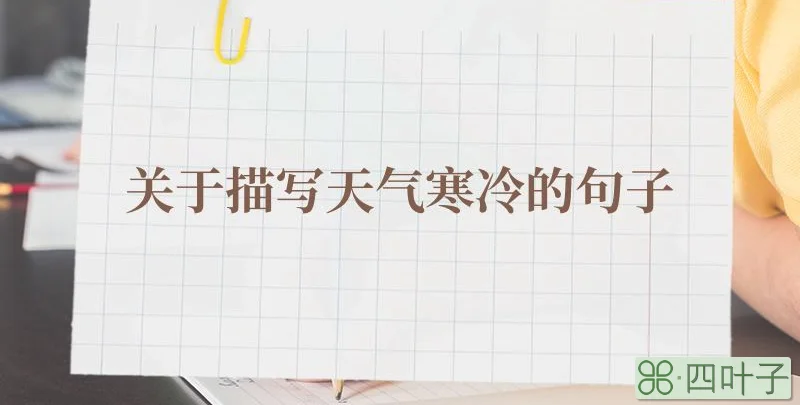 关于描写天气寒冷的句子
四叶子